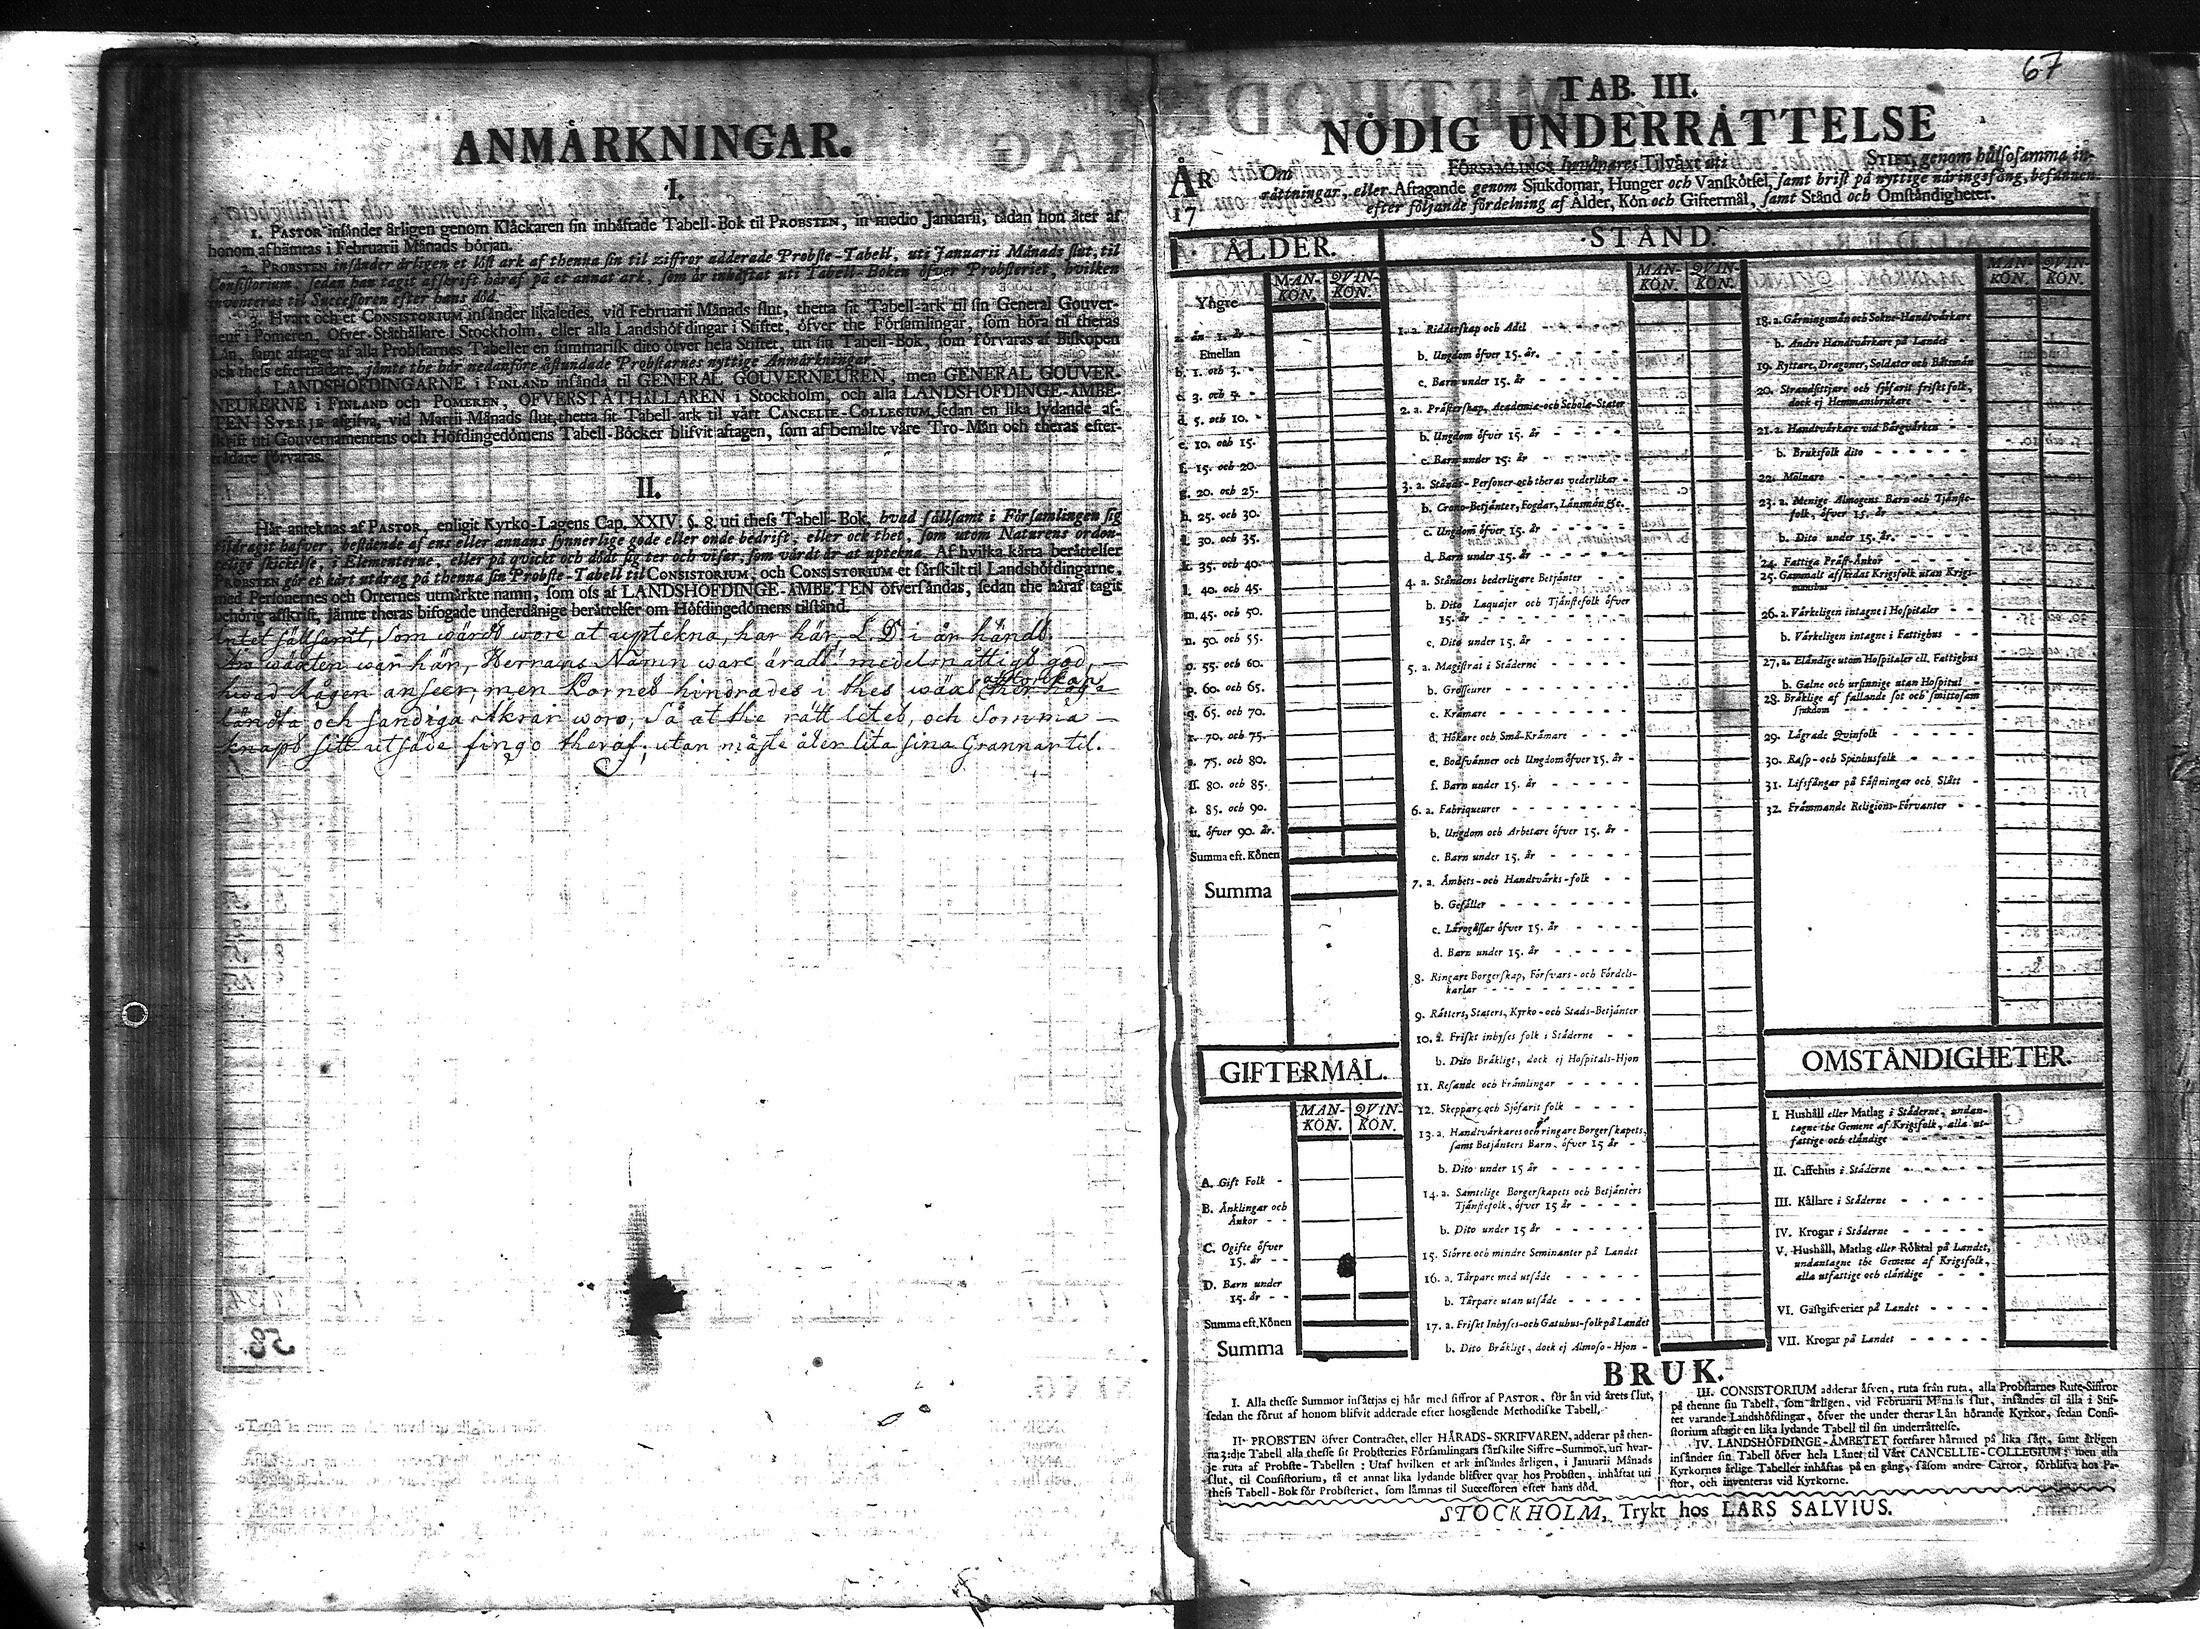 ANMÄRKNINGAR.
I.
1. PASTOR insänder årligen genom Klåckaren sin inhäftade Tabell-Bok til PROBSTEN, in medio Januarii, tädan hon åter af
honom afhämtas i Februarii Månads början.
2. PROBSTEN insänder årligen et löst ark af thenna sin til ziffror adderade Probste-Tabell, uti Januarii Månads slut, til
Consistorium, sedan han tagit afskrift häraf på et annat ark, som är inhäftat uti Tabell-Boken öfver Probsteriet, hvilken
inventeras til Successoren efter hans död.
3. Hvart och et CONSISTORIUM insänder likaledes, vid Februarii Månads slut, thetta sit Tabell-ark til sin General Gouver-
neur i Pomeren, Öfver-Ståthållare i Stockholm, eller alla Landshöfdingar i Stiftet, öfver the Församlingar, som höra til theras
Län, samt aftager af alla Probstarnes Tabeller en summarisk dito öfver hela Stiftet, uti sin Tabell-Bok, som förvaras af Biskopen
och thess efterträdare, jämte the här nedanföre åstundade Probstarnes nyttige Anmärkningar.
4. LANDSHÖFDINGARNE i FINLAND insända til GENERAL GOUVERNEUREN, men GENERAL GOUVER-
NEURERNE i FINLAND och POMEREN, ÖFVERSTÅTHÅLLAREN i Stockholm, och alla LANDSHÖFDINGE-ÄMBE-
TEN i SVERJE afgifva, vid Martii Månads slut, thetta sit Tabell-ark til vårt CANCELIE-COLLEGIUM, sedan en lika lydande af-
skrift uti Gouvernamentens och Höfdingedömens Tabell-Böcker blifvit aftagen, som af bemälte våre Tro-Män och theras efter-
trädare förvaras.
II.
Här anteknas af PASTOR, enligit Kyrko-Lagens Cap. XXIV. §. 8. uti thess Tabell-Bok, hvad sällsamt i Församlingen sig
tildragit hafver, bestående af ens eller annans synnerlige gode eller onde bedrift, eller ock thet, som utom Naturens ordon-
telige skickelse, i Elementerne, eller på qvickt och dödt sig ter och visar, som värdt är at uptekna. Af hvilka kårta berättelser
PROBSTEN gör et kårt utdrag på thenna sin Probste-Tabell til CONSISTORIUM, och CONSISTORIUM et särskilt til Landshöfdingarne,
med Personernes och Orternes utmärkte namn, som oss af LANDSHÖFDINGE-ÄMBETEN öfversändas, sedan the häraf tagit
behörig afskrift, jämte theras bifogade underdånige berättelser om Höfdingedömens tilstånd.
Intet sällsamt, som wärdt wore at uptekna, har här, L. D. i år händt.
Års wäxten war här, Herrans Namn ware äradt! medelmåttigt god,
hwad Rågen anseer; men Kornet hindrades i thes wäxt ther hög-
ländta och sandiga Åkrar woro, så at the rätt litet, och somma
knapt sitt utsäde fingo theraf, utan måste åter lita sina Grannar til.
67
TAB. III.
NÖDIG UNDERRÄTTELSE
ÅR 17
Om FÖRSAMLINGS Invånares Tilväxt uti STIFT, genom hälsosamma in-
rättningar, eller Aftagande genom Sjukdomar, Hunger och Vanskötsel, samt brist på nyttige näringsfång, befunnen
efter följande fördelning af Ålder, Kön och Giftermål, samt Stånd och Omständigheter.
ÅLDER.
MAN-KÖN. QVIN-KÖN.
Yngre
a. än 1. år
Emellan
b. 1. och 3.
c. 3. och 5.
d. 5. och 10.
e. 10. och 15.
f. 15. och 20.
g. 20. och 25.
h. 25. och 30.
i. 30. och 35.
k. 35. och 40.
l. 40. och 45.
m. 45. och 50.
n. 50. och 55.
o. 55. och 60.
p. 60. och 65.
q. 65. och 70.
r. 70. och 75.
s. 75. och 80.
ss. 80. och 85.
t. 85. och 90.
u. öfver 90. år.
Summa eft. Könen
Summa
GIFTERMÅL.
MAN-KÖN. QVIN-KÖN.
A. Gift Folk
B. Änklingar och
Änkor
C. Ogifte öfver
15. år
D. Barn under
15. år
Summa eft. Könen
Summa
STÅND.
MAN-KÖN. QVIN-KÖN.
1. a. Ridderskap och Adel
b. Ungdom öfver 15. år.
c. Barn under 15. år
2. a. Prästerskap, Academiæ- och Scholæ-Stater
b. Ungdom öfver 15. år
c. Barn under 15. år
3. a. Stånds-Personer och theras vederlikar
b. Crono-Betjänter, Fogdar, Länsmän &c.
c. Ungdom öfver 15. år
d. Barn under 15. år
4. a. Ståndens hederligare Betjänter
b. Dito Laquajer och Tjänstefolk öfver
15. år
c. Dito under 15. år
5. a. Magistrat i Städerne
b. Grosseurer
c. Krämare
d. Hökare och Små-Krämare
e. Bodsvänner och Ungdom öfver 15. år
f. Barn under 15. år
6. a. Fabriqueurer
b. Ungdom och Arbetare öfver 15. år
c. Barn under 15. år
7. a. Ämbets- och Handtvärks-folk
b. Gesäller
c. Lärogåssar öfver 15. år
d. Barn under 15. år
8. Ringare Borgerskap, Försvars- och Fördels-
karlar
9. Rätters, Staters, Kyrko- och Stads-Betjänter
10. a. Friskt inhyses folk i Städerne
b. Dito Bräkligt, dock ej Hospitals-Hjon
11. Resande och Främlingar
12. Skeppare och Sjöfarit folk
13. a. Handtvärkares och ringare Borgerskapets,
samt Betjänters Barn, öfver 15 år
b. Dito under 15 år
14. a. Samtelige Borgerskapets och Betjänters
Tjänstefolk, öfver 15 år
b. Dito under 15 år
15. Större och mindre Seminanter på Landet
16. a. Tårpare med utsäde
b. Tårpare utan utsäde
17. a. Friskt Inhyses- och Gatuhus-folk på Landet
b. Dito Bräkligt, dock ej Almoso-Hjon
MAN-KÖN. QVIN-KÖN.
18. a. Gärningsmän och Sokne-Handtvärkare
b. Andre Handtvärkare på Landet
19. Ryttare, Dragoner, Soldater och Båtsmän
20. Strandsittjare och sjöfarit friskt folk,
dock ej Hemmansbrukare
21. a. Handtvärkare vid Bärgvärken
b. Bruksfolk dito
22. Mölnare
23. a. Menige Almogens Barn och Tjänste-
folk, öfver 15. år
b. Dito under 15. år.
24. Fattiga Präst-Änkor
25. Gammalt afskedat Krigsfolk utan Krigs-
manshus
26. a. Värkeligen intagne i Hospitaler
b. Värkeligen intagne i Fattighus
27. a. Eländige utom Hospitaler ell. Fattighus
b. Galne och ursinnige utan Hospital
28. Bräklige af fallande sot och smittosam
sjukdom
29. Lägrade Qvinfolk
30. Rasp- och Spinhusfolk
31. Lifsfångar på Fästningar och Slått
32. Främmande Religions-Förvanter
OMSTÄNDIGHETER.
I. Hushåll eller Matlag i Städerne, undan-
tagne the Gemene af Krigsfolk, alla ut-
fattige och eländige
II. Caffehus i Städerne
III. Källare i Städerne
IV. Krogar i Städerne
V. Hushåll, Matlag eller Röktal på Landet,
undantagne the Gemene af Krigsfolk,
alla utfattige och eländige
VI. Gästgifverier på Landet
VII. Krogar på Landet
BRUK.
I. Alla thesse Summor insättjas ej här med siffror af PASTOR, för än vid årets slut,
sedan the förut af honom blifvit adderade efter hosgående Methodiske Tabell.
II. PROBSTEN öfver Contractet, eller HÄRADS-SKRIFVAREN, adderar på then-
na 3:dje Tabell alla thesse sit Probsteries Församlingars särskilte Siffre-Summor, uti hvar-
je ruta af Probste-Tabellen: Utaf hvilken et ark insändes årligen, i Januarii Månads
slut, til Consistorium, tå et annat lika lydande blifver qvar hos Probsten, inhäftat uti
thess Tabell-Bok för Probsteriet, som lämnas til Successoren efter hans död.
III. CONSISTORIUM adderar äfven, ruta från ruta, alla Probstarnes Rute-Siffror
på thenne sin Tabell, som årligen, vid Februarii Månads slut, insändes til alla i Stif-
tet varande Landshöfdingar, öfver the under theras Län hörande Kyrkor, sedan Consi-
storium aftagit en lika lydande Tabell til sin underrättelse.
IV. LANDSHÖFDINGE-ÄMBETET fortfarer härmed på lika sätt, samt årligen
insänder sin Tabell öfver hela Länet til Vårt CANCELLIE-COLLEGIUM; men alla
Kyrkornes årlige Tabeller inhäftas på en gång, såsom andre Cartor, förblifva hos Pa-
stor, och inventeras vid Kyrkorne.
STOCKHOLM, Trykt hos LARS SALVIUS.